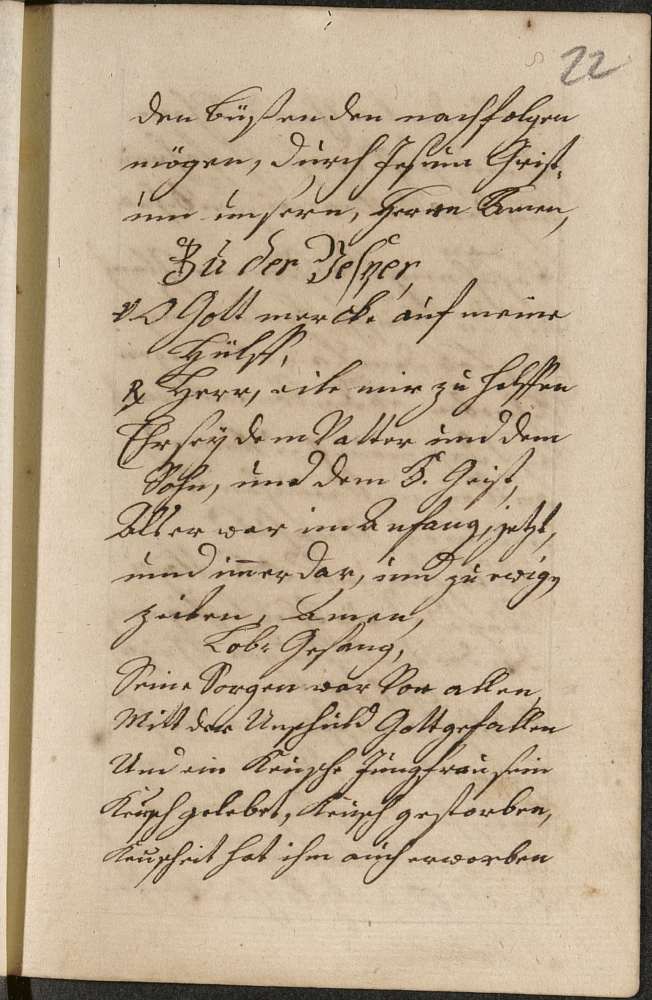 22
den büßenden nachfolgen
mögen, durch Jesum Christ,
um unsern, Herrn Amen,
Zu der Vesper,
℣ O Gott mercke auf meine
Hülff,
℟ Herr, eile mir zu helffen
Ehr sey dem Vatter und dem
Sohn, und dem H. Geist,
Alß er war im Anfang, jetzt,
und immerdar, und zu ewigen
zeiten, Amen,
Lob: Gesang,
Seine Sorgen war Vor allen,
Mitt der Unschuld Gott gefallen
Und ein Keusche Jungfrau sein
Keusch gelebet, Keusch gestorben,
Keuschheit hat ihm auch erworben